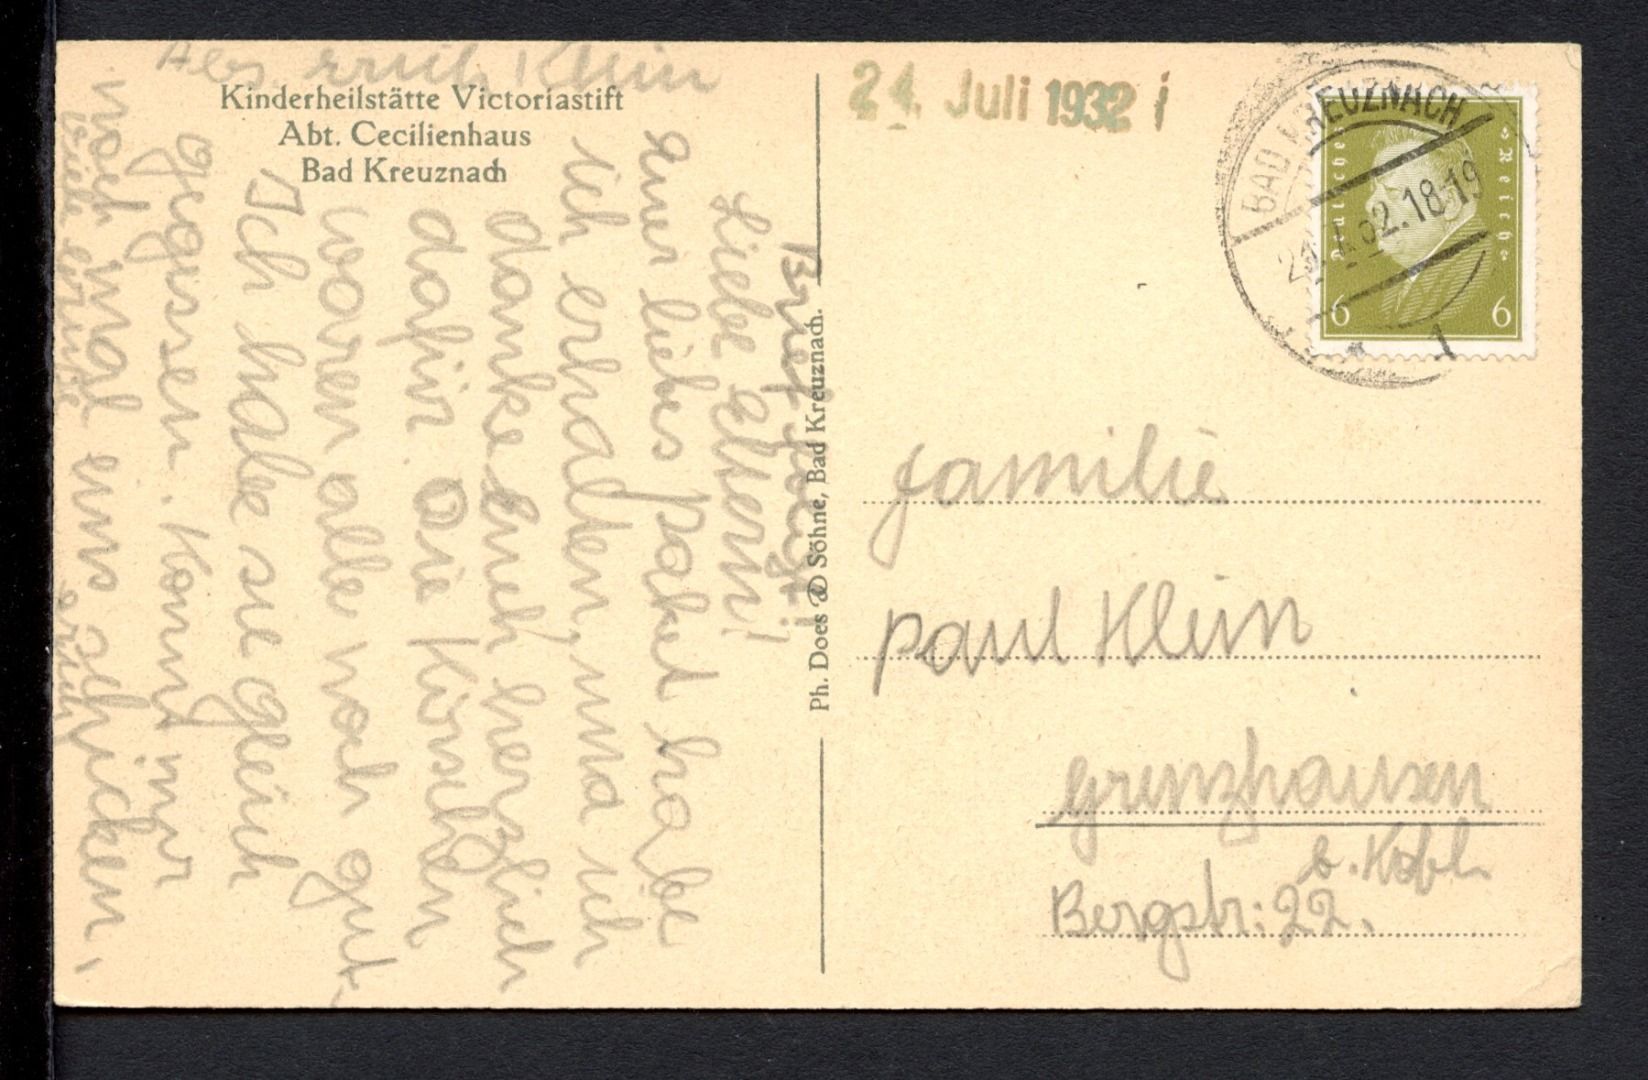 Abs. Klein
Kinderheilstätte Victoriastift
Abt. Cecilienhaus
Bad Kreuznach
Brief folgt!
Liebe Eltern!
Euer liebes Paket habe
ich erhalten, und ich
danke Euch herzlich
dafür. Die Kirschen
waren alle noch gut.
Ich habe sie gleich
gegessen. Könnt ihr
noch mal uns schicken,
Ph. Does & Söhne, Bad Kreuznach.
24. Juli 1932
BAD KREUZNACH
.32.18-19
1
Deutsches Reich
6 6
Familie
Paul Klein
Grenzhausen
b. Kobl.
Bergstr: 22.